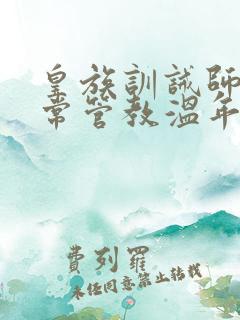 皇族訓誡師
常管教溫年
費列羅
未任同意禁止轉載